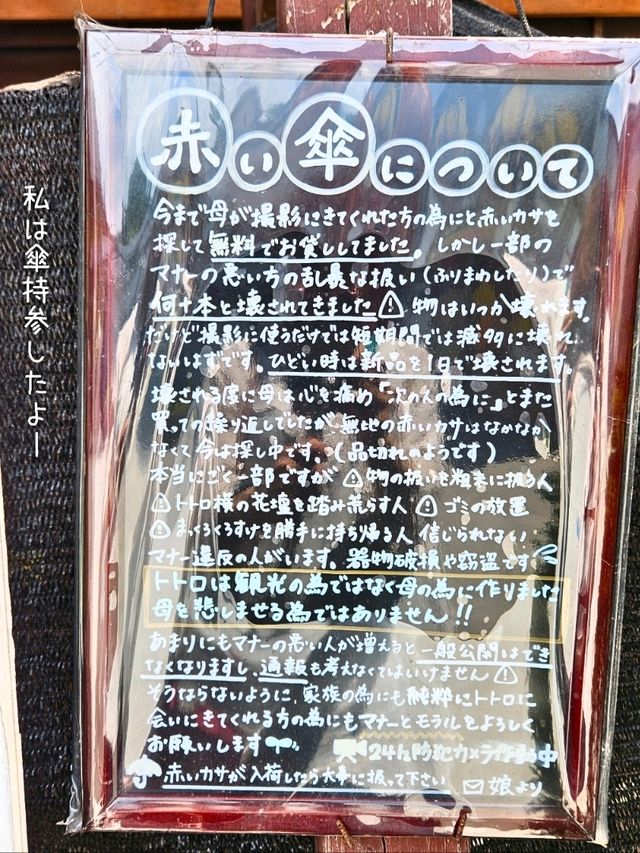 赤い傘について
今まで母が撮影にきてくれた方の為にと赤いカサを
探して無料でお貸ししてました。しかし一部の
マナーの悪い方の乱暴な扱い(ふりまわしたり)で
何十本と壊されてきました⚠物はいつか壊れます。
だけど撮影に使うだけでは短期間では滅多に壊れ
ないはずです。ひどい時は新品を1日で壊されます。
壊される度に母は心を痛め「次の人の為に」とまた
買っての繰り返しでしたが、無地の赤いカサはなかなか
なくて今は探し中です。(品切れのようです)
本当にごく一部ですが⚠物の扱いを粗末に扱う人
⚠トトロ様の花壇を踏み荒らす人⚠ゴミの放置
⚠まっくろくろすけを勝手に持ち帰る人 信じられない
マナー違反の人がいます。器物破損や窃盗です
トトロは観光の為ではなく母の為に作りました
母を悲しませる為ではありません!!
あまりにもマナーの悪い人が増えると一般公開はでき
なくなりますし、通報も考えなくてはいけません⚠
そうならないように、家族の為にも純粋にトトロに
会いにきてくれる方の為にもマナーとモラルをよろしく
お願いします
24h防犯カメラ作動中
赤いカサが入荷したら大事に扱って下さい
娘より
私は傘持参したよー